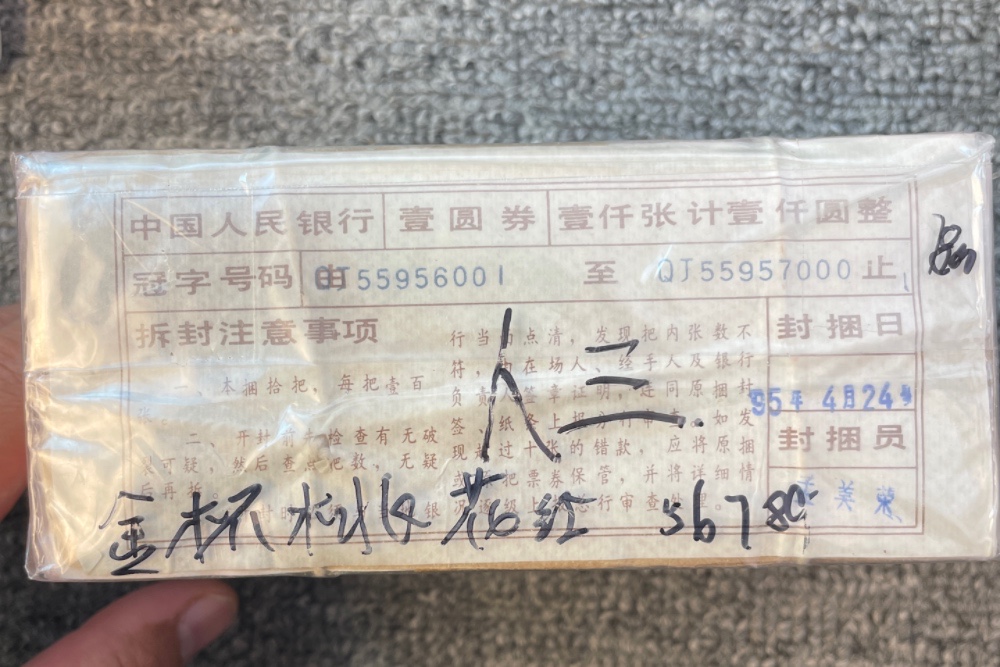 中国人民银行 壹圆券 壹仟张计壹仟圆整
冠字号码 由 QJ55956001 至 QJ55957000 止
拆封注意事项
封捆日
一、本捆拾把，每把壹百
张
二、开封前先检查有无破
可疑，然后查点把数，无疑
后再拆
行当 点清，发现把内张数不
符，由在场人、经手人及银行
负责 签章证明，连同原捆封
签、纸条上报 行审查。如发
现 过十张的错款，应将原捆
把票券保管，并将详细情
行审查处理。
95年 4月24
封捆员
美荣
人三
金杯 花红 5678